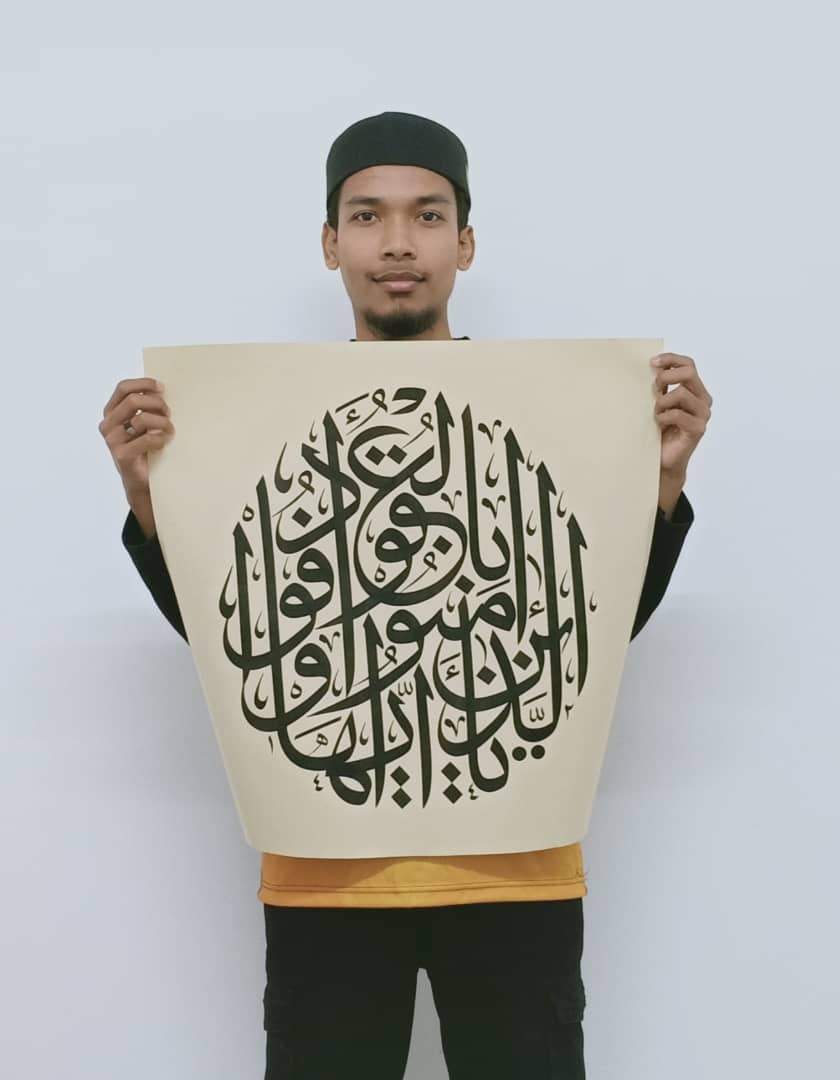 يَا أَيُّهَا الَّذِينَ آمَنُوا أَوْفُوا بِالْعُقُودِ